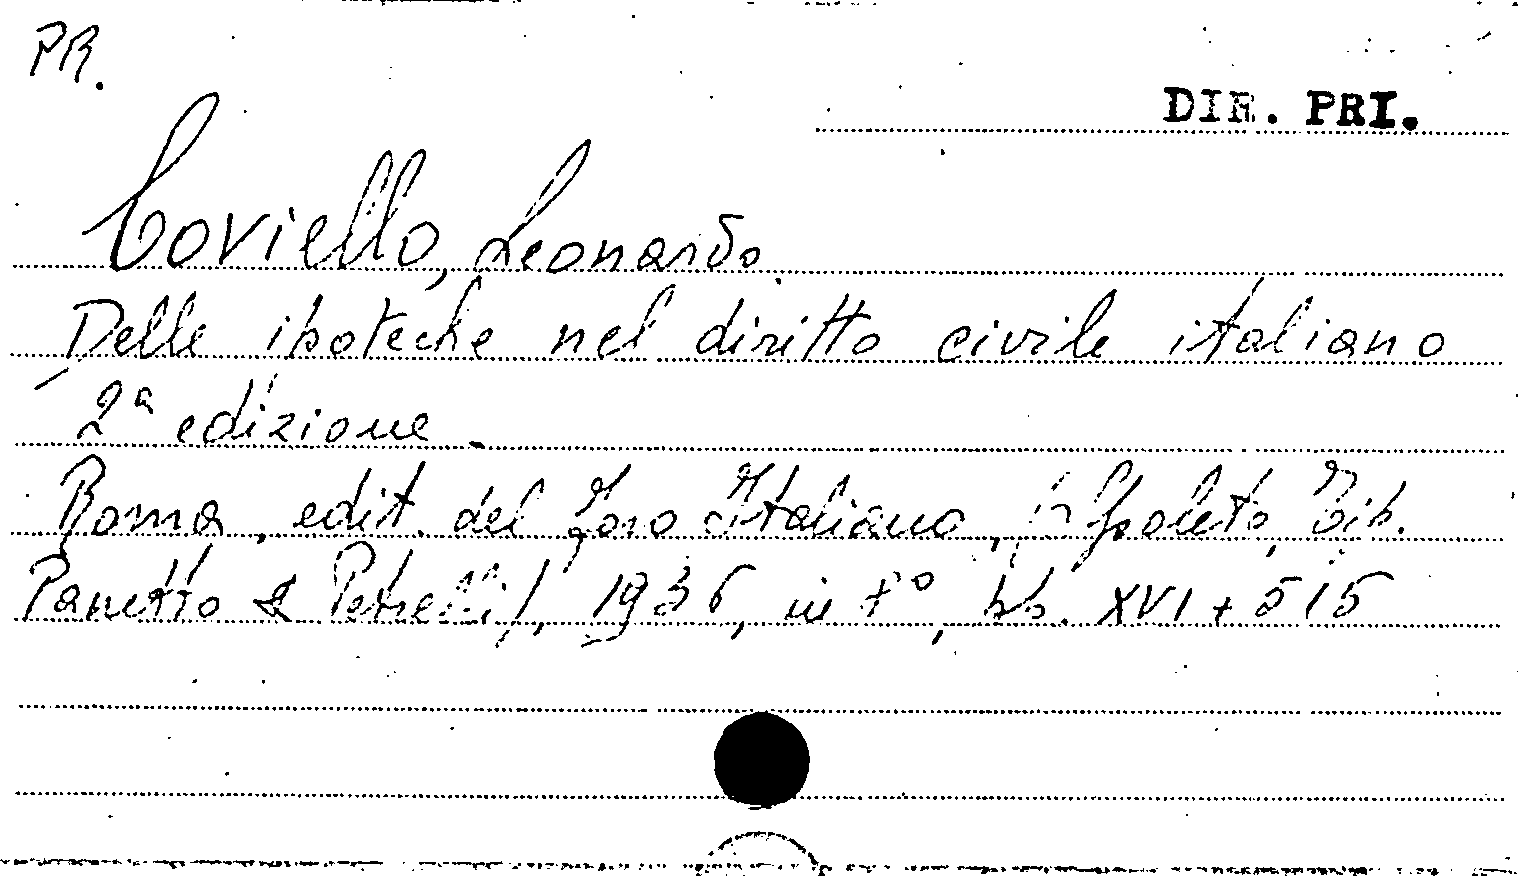 PR.
DIR. PRI.
Coviello, Leonardo
Delle ipoteche nel diritto civile italiano
2ª edizione.
Roma, edit. del Foro Italiano, (Spoleto, Tip.
Panetto & Petrelli), 1936, in 8°, pp. XVI + 515